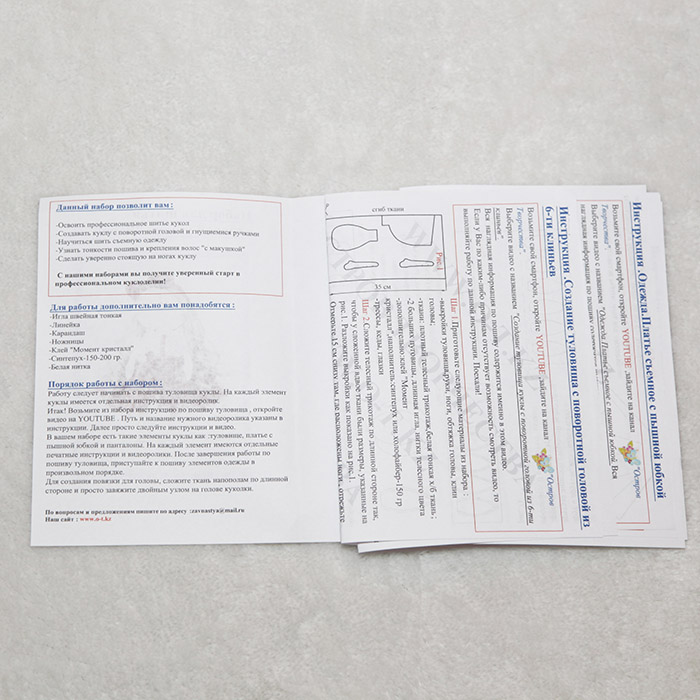 Данный набор позволит вам :
-Освоить профессиональное шитье кукол
-Создавать куклу с поворотной головой и гнущимися ручками
-Научиться шить съемную одежду
-Узнать тонкости пошива и крепления волос "с макушкой"
-Сделать уверенно стоящую на ногах куклу
С нашими наборами вы получите уверенный старт в
профессиональном куклоделии!
Для работы дополнительно вам понадобятся :
-Игла швейная тонкая
-Линейка
-Карандаш
-Ножницы
-Клей "Момент кристалл"
-Синтепух-150-200 гр.
-Белая нитка
Порядок работы с набором :
Работу следует начинать с пошива туловища куклы. На каждый элемент
куклы имеется отдельная инструкция и видеоролик.
Итак! Возьмите из набора инструкцию по пошиву туловища , откройте
видео на YOUTUBE . Путь и название нужного видеоролика указаны в
инструкции. Далее просто следуйте инструкции и видео.
В вашем наборе есть такие элементы куклы как :туловище, платье с
пышной юбкой и панталоны. На каждый элемент имеются отдельные
печатные инструкции и видеоролики. После завершения работы по
пошиву туловища, приступайте к пошиву элементов одежды в
произвольном порядке.
Для создания повязки для головы, сложите ткань напополам по длинной
стороне и просто завяжите двойным узлом на голове куколки.
По вопросам и предложениям пишите по адресу :zavnastya@mail.ru
Наш сайт : www.o-t.kz
Инструкция .Одежда.Платье съемное с пышной юбкой
Возьмите свой смартфон, откройте YOUTUBE ,зайдите на канал "Остров
Творчества".
Выберите видео с названием "Одежда.Платье съемное с пышной юбкой. Вся
наглядная информация по пошиву
Инструкция .Создание туловища с поворотной головой из
6-ти клиньев
Возьмите свой смартфон, откройте YOUTUBE ,зайдите на канал "Остров
Творчества".
Выберите видео с названием "Создание туловища куклы с поворотной головой из 6-ти
клиньев".
Вся наглядная информация по пошиву содержится именно в этом видео.
Если у Вас по каким-либо причинам отсутствует возможность смотреть видео, то
выполняйте работу по данной инструкции. Поехали!
Шаг 1.Приготовьте следующие материалы из набора :
-выкройки туловища,руки, ноги, обтяжка головы, клин
головы;
-ткани: плотный телесный трикотаж,белая тонкая х/б ткань;
-2 больших пуговицы, длинная игла, нитки телесного цвета
-дополнительно:клей "Момент
кристалл",наполнитель:синтепух или холофайбер-150 гр
-трессы, кеды, глазки
Шаг 2.Сложите телесный трикотаж по длинной стороне так,
чтобы у сложенной вдвое ткани были размеры, указанные на
рис.1. Разложите выкройки как показано на рис.1.
Отмерьте 15 см снизу там, где расположены ноги, отрежьте
сгиб ткани
Рис.1
35 см